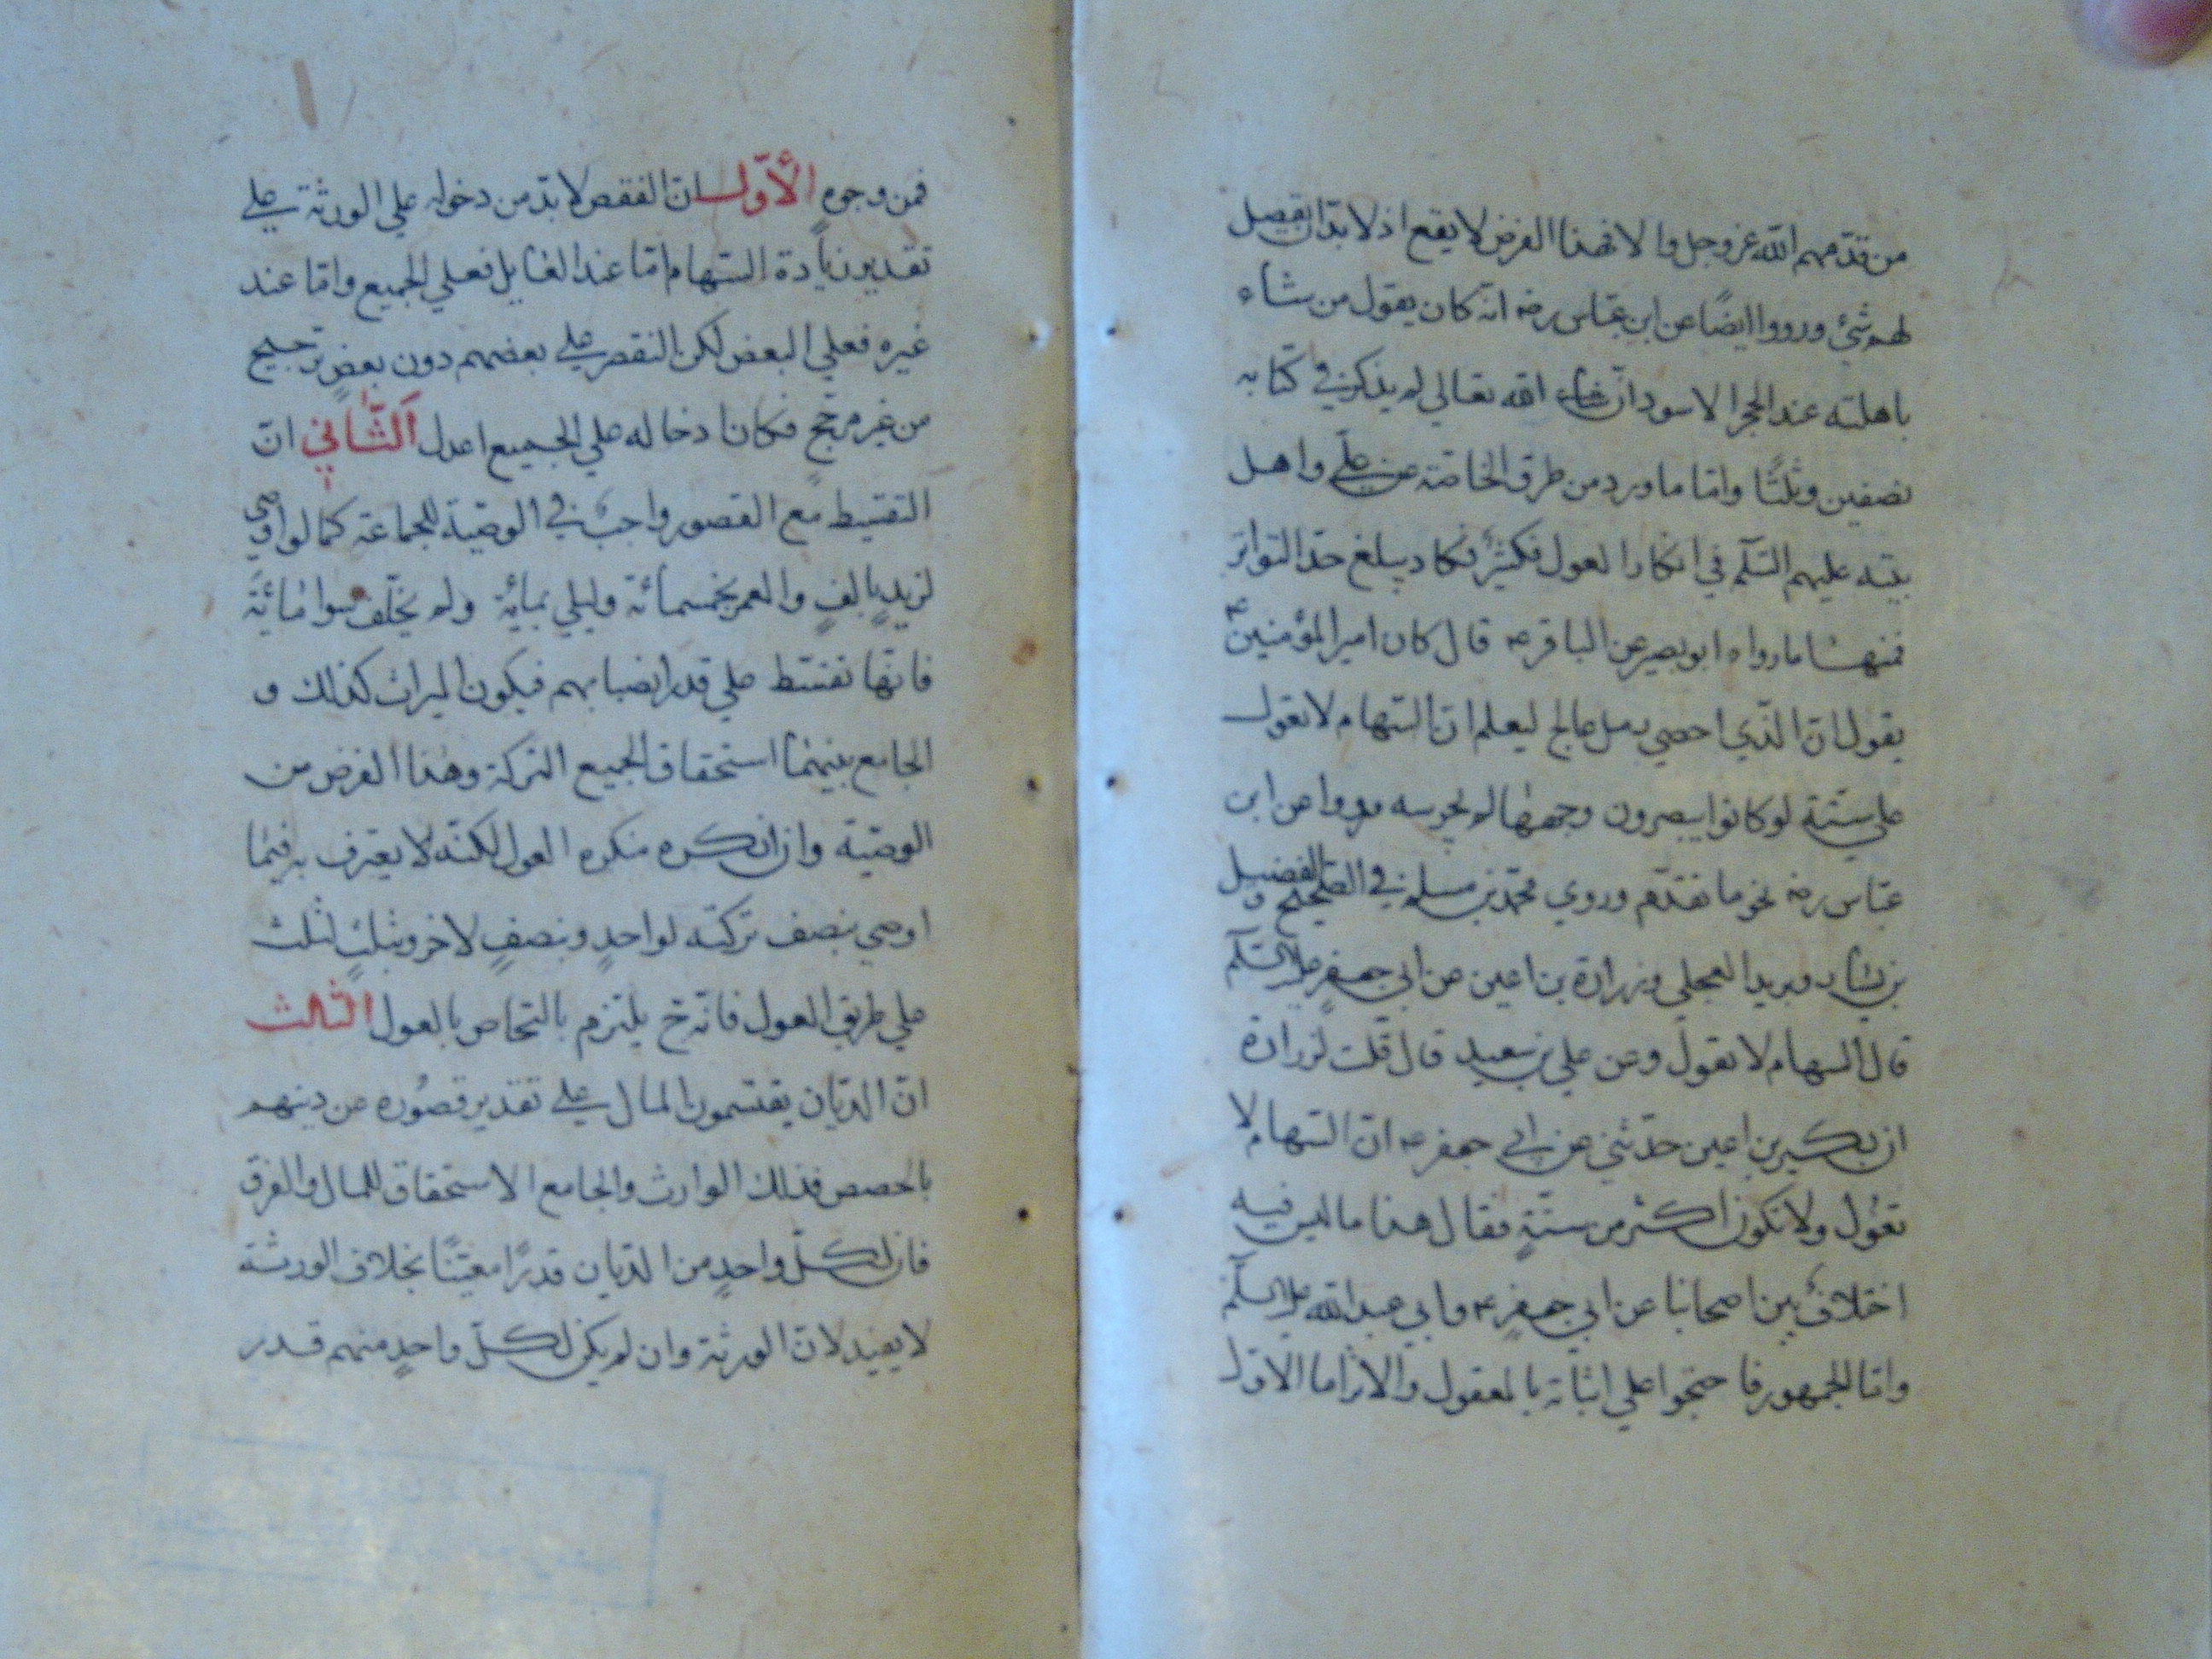 من قدمهم الله عز وجل والا فهذا الفرض لا يقع اذ لا بد ان يفصل
لهم شئ ورووا ايضًا عن ابن عباس رضه انه كان يقول من شاء
باهلته عند الحجر الاسود ان الله تعالي لم يذكر في كتابه
نصفين وثلثًا واما ما ورد من طرق الخاصة عن علي واهل
بيته عليهم السلم في انكار العول فكثيرٌ فكاد يبلغ حد التواتر
فمنها ما رواه ابو بصير عن الباقر ع قال كان امير المؤمنين ع
يقول ان الذي احصي رمل عالج ليعلم ان السهام لا تعول
علي ستة لو كانوا يبصرون وجهها لم تجز سته ورووا عن ابن
عباس رضه نحو ما تقدم وروي محمد بن مسلم في الصحيح والفضيل
بن يسار وبريد العجلي وزرارة بن اعين عن ابي جعفرٍ عليه السلم
قال السهام لا تعول وعن علي بن سعيد قال قلت لزرارة
ان بكير بن اعين حدثني عن ابي جعفر ع ان السهام لا
تعول ولا تكون اكثر من ستةٍ فقال هذا ما ليس فيه
اختلافٌ بين اصحابنا عن ابي جعفرٍ ع وابي عبد الله عليه السلم
واما الجمهور فاحتجوا علي اثباته بالمعقول والاثر اما الاول
فمن وجوهٍ الأوّل ان النقص لا بدّ من دخوله علي الورثة علي
تقدير زيادة السهام امّا عند العايل فعلي الجميع وامّا عند
غيره فعلي البعض لكن النقص علي بعضهم دون بعضٍ ترجيح
من غير مرجّح فكان ادخاله علي الجميع اعدل الثّاني انّ
التقسيط مع القصور واجبٌ في الوصية للجماعة كما لو اوصي
لزيدٍ بالفٍ والعمر بخمسمائة وليلي بمائة ولم يخلّف سوا مائة
فانّها تقسّط علي قدر انصبائهم فيكون الميراث كذلك و
الجامع بينهما استحقاق الجميع التركة وهذا الفرض من
الوصية وان انكره منكره العول لكنّه لا يعترف به فيما
اوصي بنصف تركته لواحدٍ وبنصفٍ لاخر وبثلثٍ لثلث
علي طريق العول فانّه ح يلتزم بالتحاص بالعول الثّالث
انّ الديّان يقتسمون المال علي تقدير قصُوره عن دينهم
بالحصص فذلك الوارث والجامع الاستحقاق للمال والفرق
فان لكلّ واحدٍ من الديّان قدرًا معيّنًا بخلاف الورثة
لا يفيد لانّ الورثة وان لم يكن لكلّ واحدٍ منهم قدر